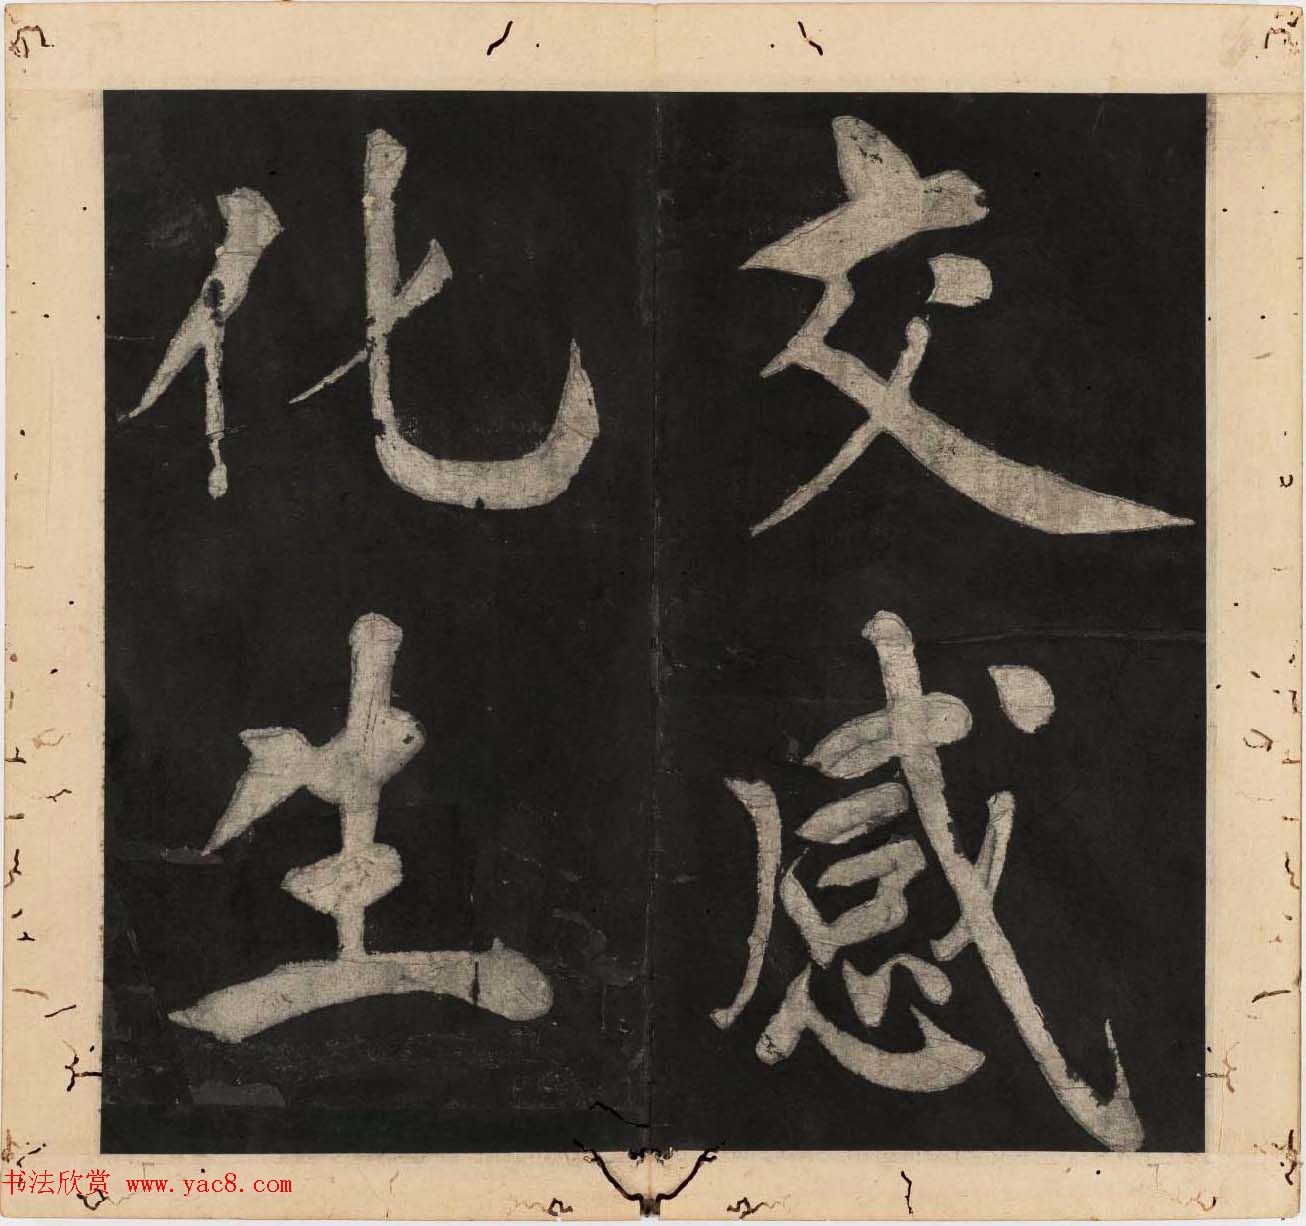 交感
化生
书法欣赏 www.yac8.com